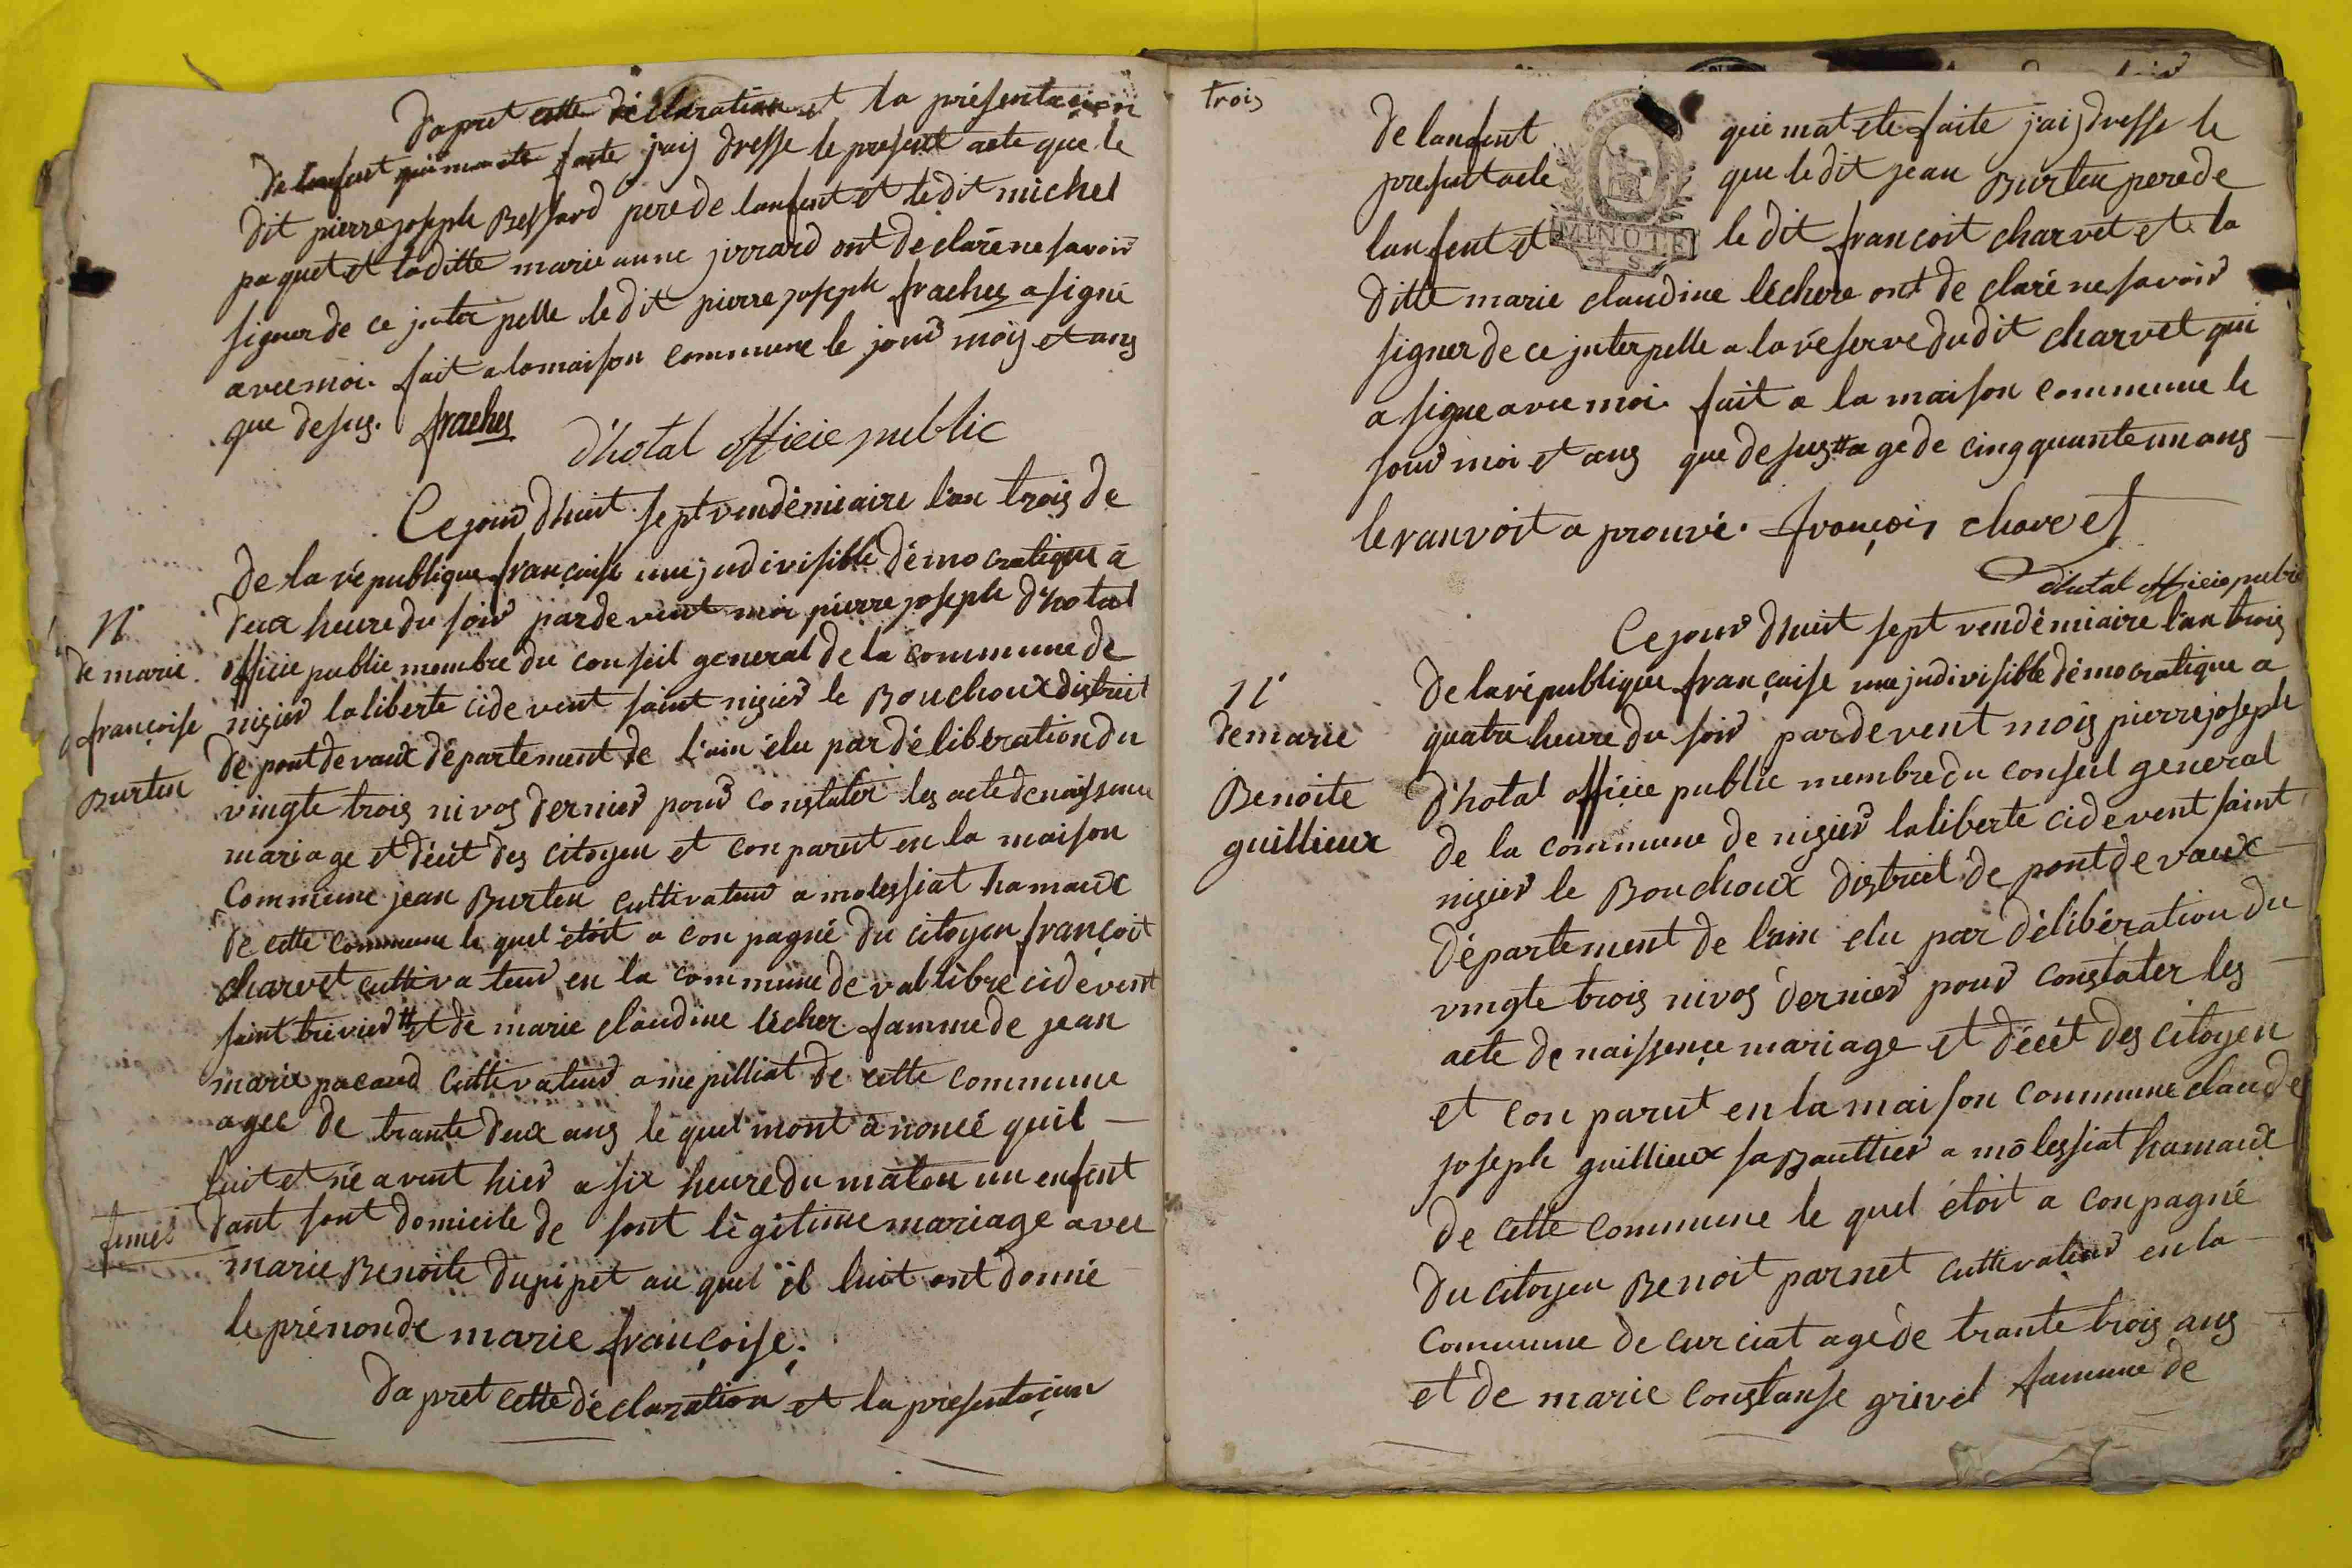 dapret cette déclaration et la présentacion
de lenfent qui mat ete faite jaij dresse le present acte que le
dit pierre joseph Bessard pere de lenfent et le dit michel
paquet et la ditte marie anne jorrard ont déclaré ne savoir
signer de ce juter pelle le dit pierre joseph fraches a signé
avec moi. fait a la maison commune le jour mois et ans
que desus. fraches
d'hotal officie public
Ce jour dhuit sept vendémiaire l'an trois de
de la république francaise une judivisible démocratique a
N
deux heure du soir par devent moi pierre joseph d'hotal
de marie
officie public membre du conseil general de la commune de
françoise
nizier la liberte cidevent saint nizier le Bouchoux district
de pont de vaux département de l'ain élu par délibération du
Burten
vingte trois nivos dernier pour constater les acte de naissence
mariage et décét des citoyen et conparut en la maison
Commune jean Burten cultivateur a molessiat hamaux
de cette commune le quel étoit a conpagné du citoyen françoit
charvet cultivateur en la commune de val libre cidevent
saint trivier # et de marie claudine lécher famme de jean
marie pacaud cultivateur a mepilliat de cette commune
agee de trante deux ans le quel mont anoncé quil
luit et né avent hier a six heure du maten un enfent
femel
dant sont domicile de sont légitime mariage avec
marie Benoite dupipet au quel il luit ont donné
le prénon de marie françoise.
dapret cette déclaration et la présentacion
trois
de lanfent qui mat ete faite jaij dresse le
present acte que le dit jean Burten pere de
lanfent et le dit françoit charvet et la
MINUTE
ditte marie claudine léchere ont de claré ne savoir
signer de ce juterpelle a la réserve du dit charvet qui
a signe avec moi. fait a la maison commune le
jour moi et ans que desus # age de cinqquante un ans
le ranvoit a prouvé. françois charvet
d'hotal officie public
Ce jour dhuit sept vendémiaire l'an trois
de la république française une judivisible démocratique a
N
de marie
quatre heure du soir par devent mois pierre joseph
Benoite
d'hotal officie public membre du conseil general
guillieux
de la commune de nizier la liberte cidevent saint
nizier le Bouchoux district de pont de vaux
département de lain elu par délibération du
vingte trois nivos dernier pour constater les
acte de naissence mariage et décét des citoyen
et conparut en la maison commune claude
joseph guillieux saBauttier a molessiat hamaux
de cette commune le quel étoit a conpagné
du citoyen Benoit parnet cultivateur en la
commune de curciat age de trante trois ans
et de marie constanse grivel famme de